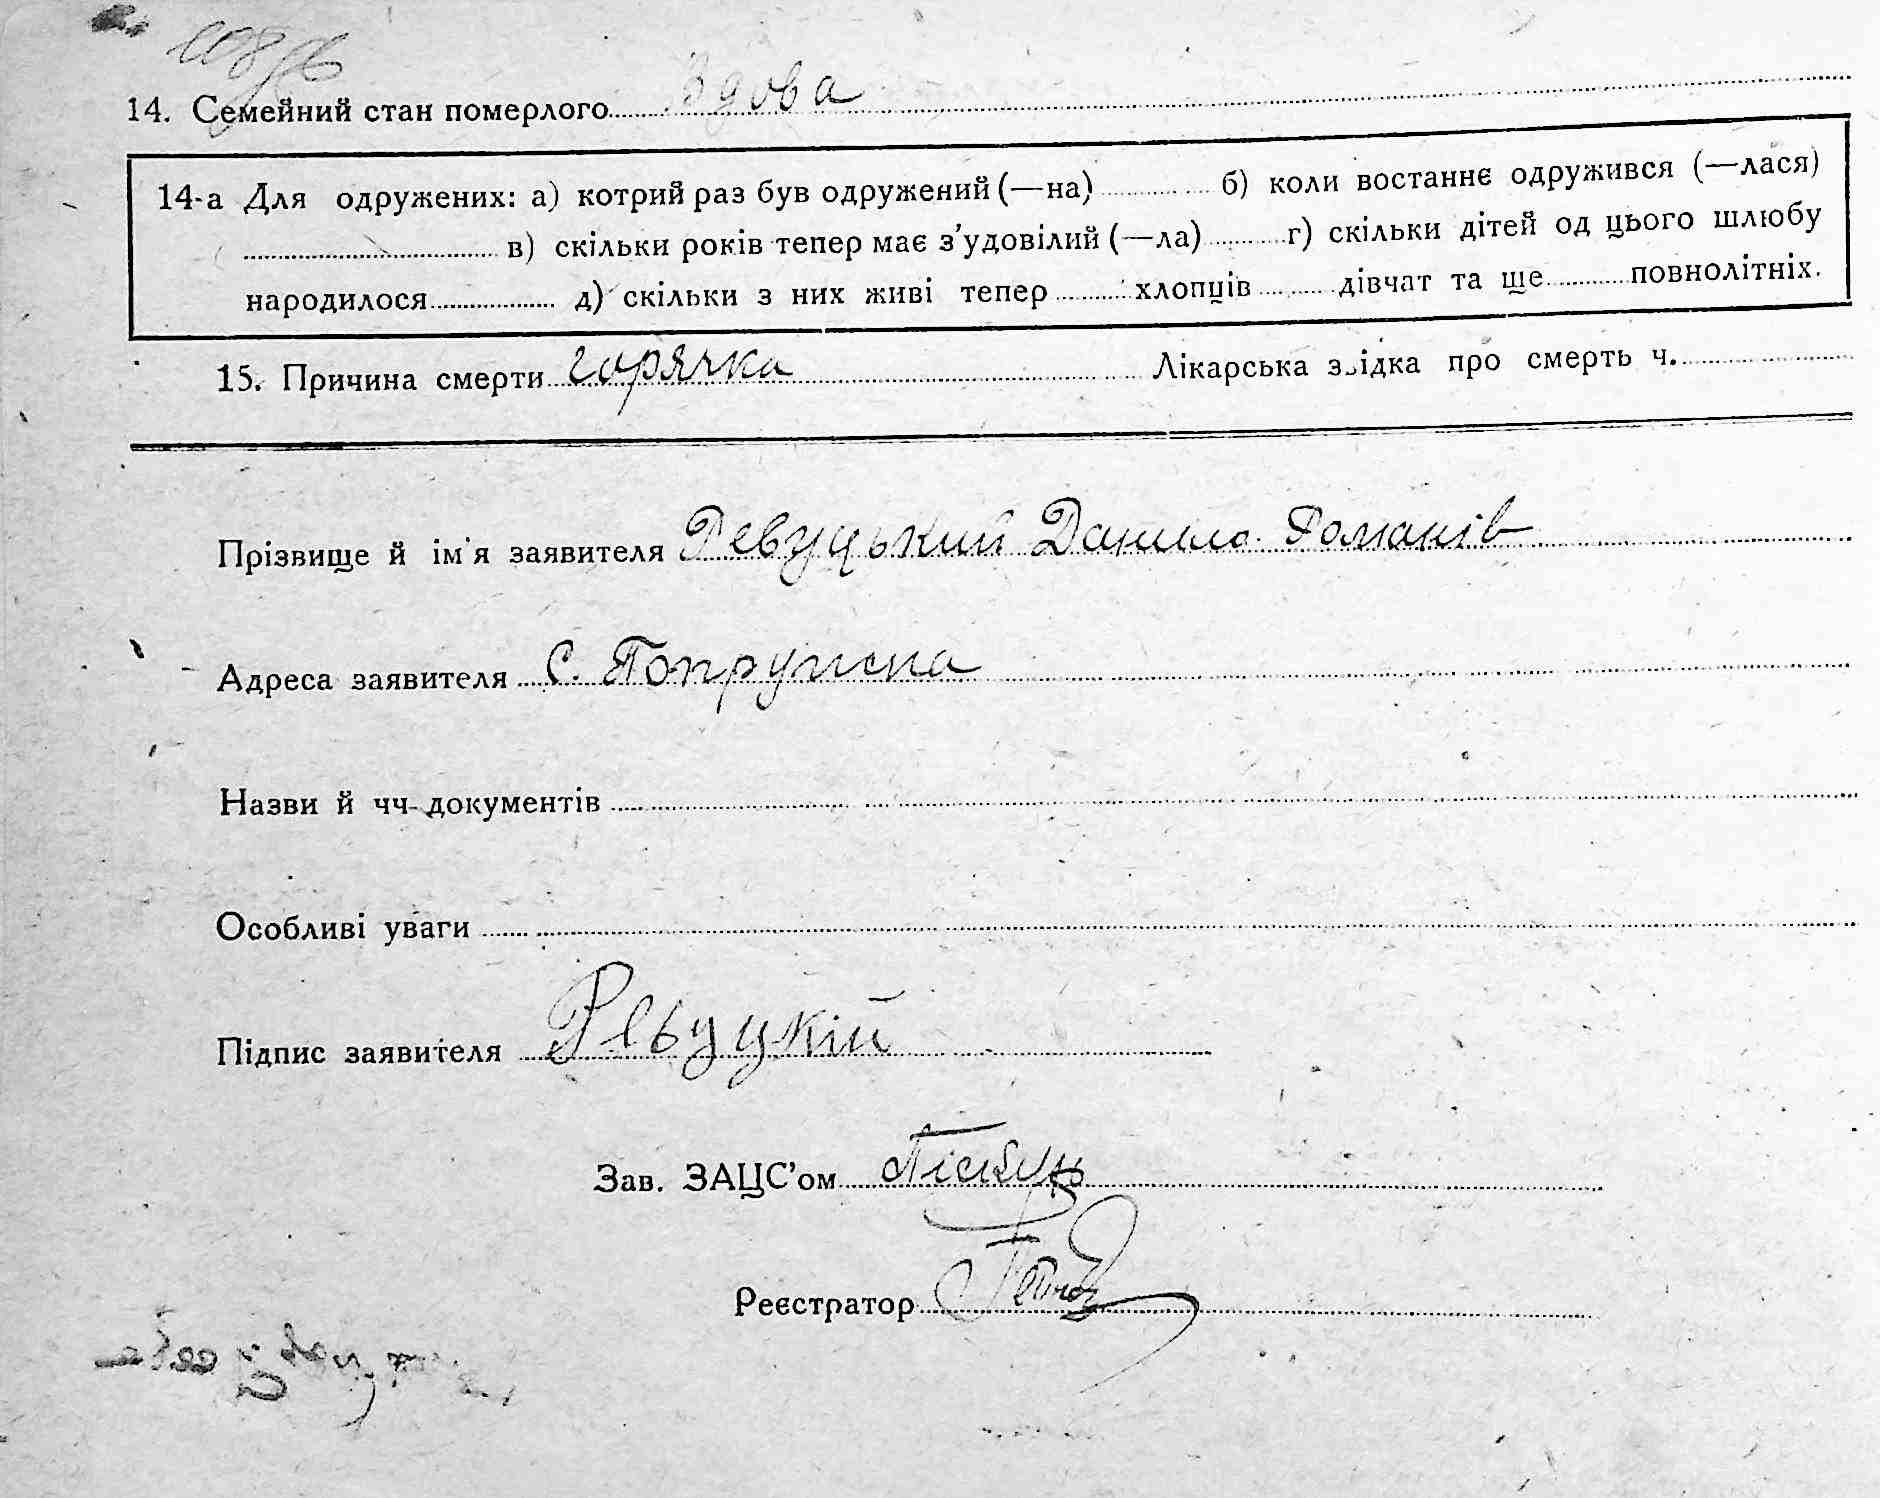 14. Семейний стан померлого Вдова
14-а Для одружених: а) котрий раз був одружений (—на) б) коли востаннє одружився (—лася)
в) скільки років тепер має з’удовілий (—ла) г) скільки дітей од цього шлюбу
народилося д) скільки з них живі тепер хлопців дівчат та ще повнолітніх.
15. Причина смерти горячка Лікарська звідка про смерть ч.
Прізвище й ім’я заявителя Ревуцький Данило Романів
Адреса заявителя С. Попружна
Назви й чч документів
Особливі уваги
Підпис заявителя Ревуцкій
Зав. ЗАЦС’ом
Реєстратор